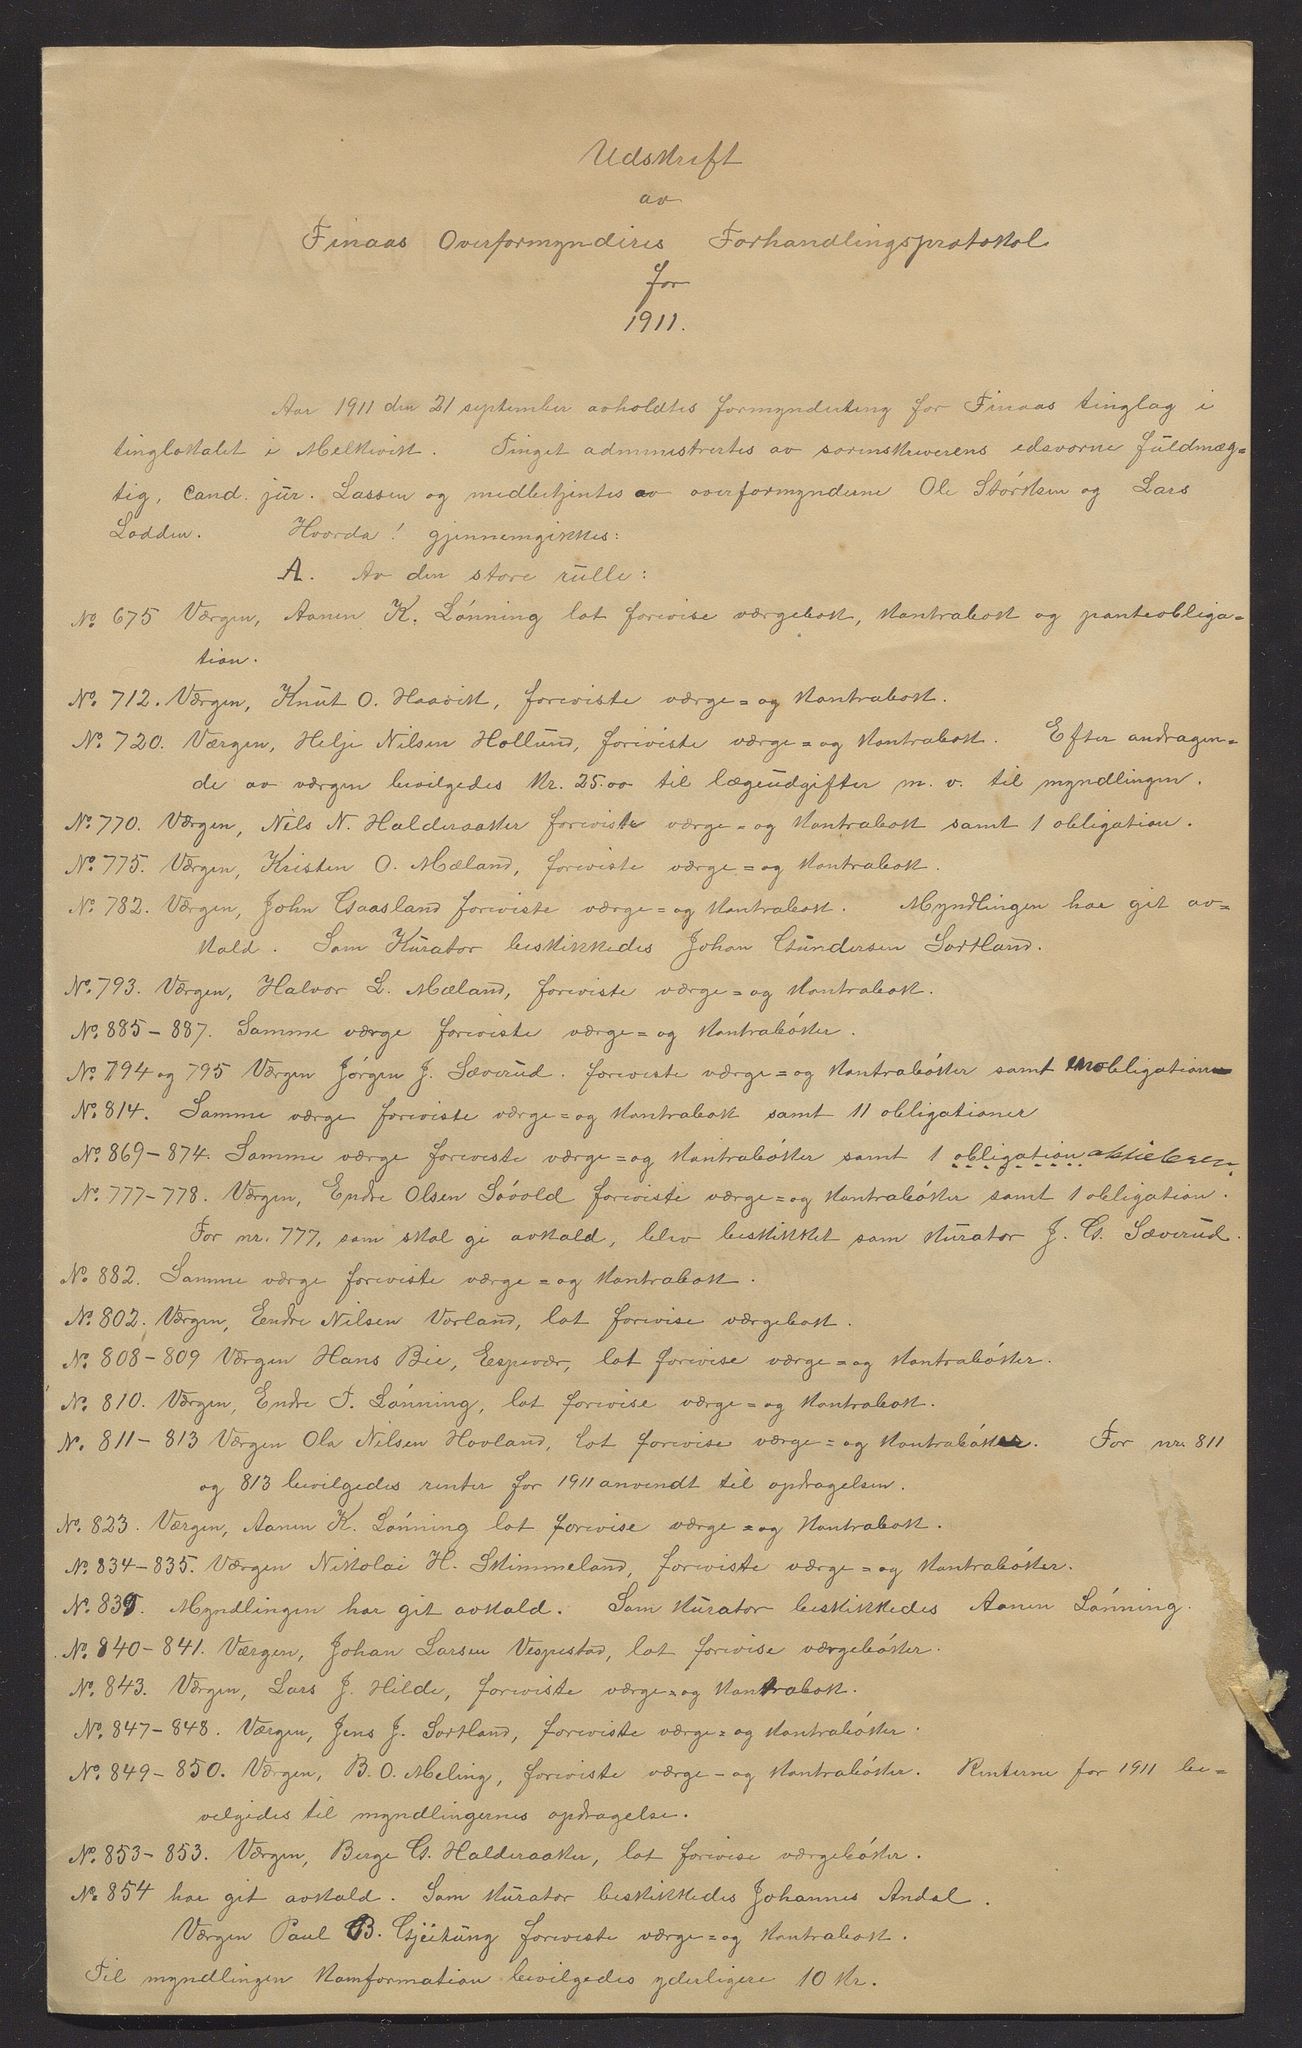 Udskrift
av
Finaas Overformynderis Forhandlingsprotokol
for
1911.
Aar 1911 den 21 september avholdtes formynderting for Finaas tinglag i
tinglokalet i Melkevik. Tinget administrertes av sorenskriverens edsvorne fuldmæg=
tig, Cand. jur. Lassen og medbetjentes av overformynderne Ole Størksen og Lars
Lodden. Hvorda! gjennemgikkes:
A. Av den store rulle:
No 675 Værgen, Aanen K. Lønning lot forevise værgebok, kontrabok og panteobliga=
tion.
No. 712. Værgen, Knut O. Haavik, foreviste værge= og kontrabok.
No. 720. Værgen, Helje Nilsen Hollund, foreviste værge= og kontrabok. Efter andragen=
de av værgen bevilgedes Kr. 25.00 til lægeudgifter m. v. til myndlingen.
No. 770. Værgen, Nils N. Halderaaker foreviste værge= og kontrabok samt 1 obligation.
No. 775. Værgen, Kristen O. Mæland, foreviste værge= og kontrabok.
No. 782. Værgen, John Gaasland foreviste værge= og kontrabok. Myndlingen har git av=
kald. Som Kurator beskikkedes Johan Gundersen Sortland.
No. 793. Værgen, Halvor L. Mæland, foreviste værge= og kontrabok.
No. 885-887. Samme værge foreviste værge= og kontrabøker.
No. 794 og 795 Værgen Jørgen J. Sæverud. foreviste værge= og kontrabøker samt obligation
No. 814. Samme værge foreviste værge= og kontrabok samt 11 obligationer
No. 869-874. Samme værge foreviste værge= og kontrabøker samt 1 obligation aktiebrev.
No. 777-778. Værgen, Endre Olsen Søvold foreviste værge= og kontrabøker samt 1 obligation.
For nr. 777, som skal gi avkald, blev beskikket som kurator J. G. Sæverud.
No. 882. Samme værge foreviste værge= og kontrabok.
No. 802. Værgen, Endre Nilsen Vorland, lot forevise værgebok.
No. 808-809 Værgen Hans Bie, Espevær, lot forevise værge= og kontrabøker.
No. 810. Værgen, Endre T. Lønning, lot forevise værge= og kontrabok.
No. 811-813 Værgen Ola Nilsen Hovland, lot forevise værge= og kontrabøker. For nr. 811
og 813 bevilgedes renter for 1911 anvendt til opdragelsen.
No. 823. Værgen, Aanen K. Lønning lot forevise værge= og kontrabok.
No. 834-835. Værgen Nikolai H. Skimmeland, foreviste værge= og kontrabøker.
No. 835. Myndlingen har git avkald. Som kurator beskikkedes Aanen Lønning.
No. 840-841. Værgen, Johan Larsen Vespestad, lot forevise værgebøker.
No. 843. Værgen, Lars J. Hilde, foreviste værge= og kontrabok.
No. 847-848. Værgen, Jens J. Sortland, foreviste værge= og kontrabøker.
No. 849-850. Værgen, B. O. Meling, foreviste værge- og kontrabøker. Renterne for 1911 be=
vilgedes til myndlingernes opdragelse.
No. 853-853. Værgen, Berge G. Halderaaker, lot forevise værgebøker.
No. 854 har git avkald. Som kurator beskikkedes Johannes Andal.
Værgen Paul B. Gjeitung foreviste værge= og kontrabok.
Til myndlingen komformation bevilgedes yderligere 10 kr.